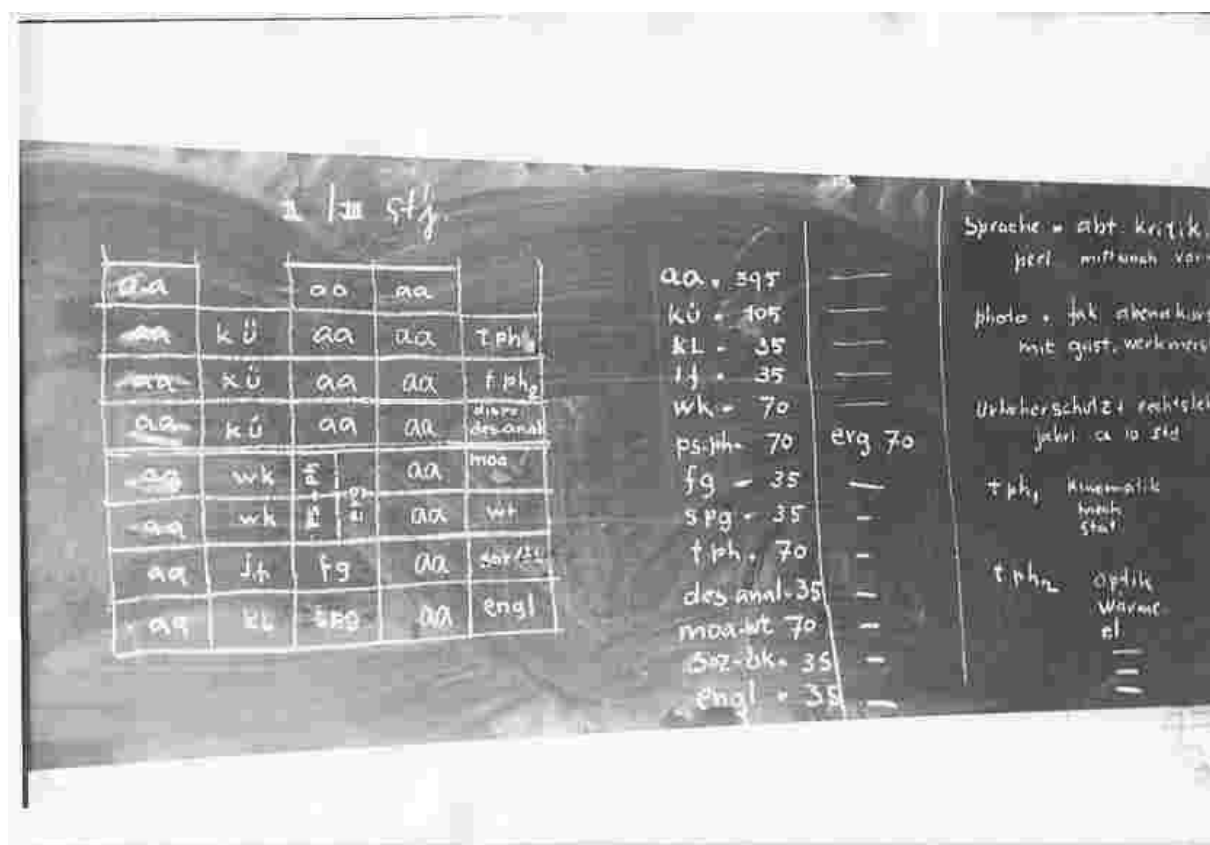 /III stf.
aa aa aa
aa kü aa aa tph1
aa kü aa aa tph2
aa kü aa aa des anal
aa wk ps-ph aa moa
aa wk erg aa wt
aa ff fg aa
aa kl spg aa engl
aa = 395
kü = 105
kl - 35
ff - 35
wk - 70
ps.ph - 70 erg 70
fg - 35
spg - 35
t.ph. 70
des anal - 35
moa.wt 70
soz-ök - 35
engl = 35
Sprache = abt. kritik.
peel mittwoch
photo = fak abendkurs
mit gast, werkmeist
Urheberschutz:
jährl ca 10 std
t ph1 kinematik
mech
stat
t ph2 optik
wärme
el